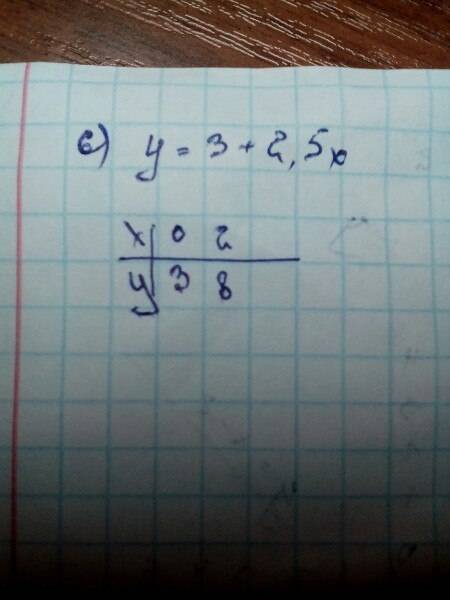 e) y = 3 + 2,5x
x 0 2
y 3 8